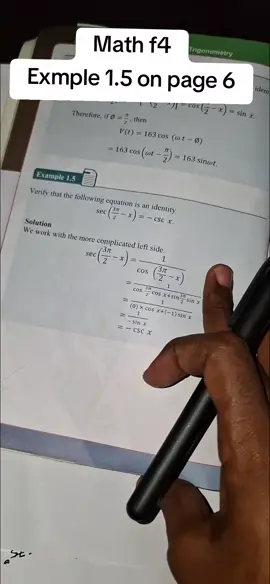 Math f4
Exmple 1.5 on page 6
Trigonometry
Therefore, if ∅ = π/2, then
V(t) = 163 cos (ωt − ∅)
= 163 cos(ωt − π/2) = 163 sinωt.
Example 1.5
Verify that the following equation is an identity
sec(3π/2 − x) = − csc x.
Solution
We work with the more complicated left side.
sec(3π/2 − x) = 1/cos (3π/2 − x)
= 1/cos 3π/2 cos x + sin 3π/2 sin x
= 1/(0) × cos x + (−1) sin x
= 1/− sin x
= − csc x